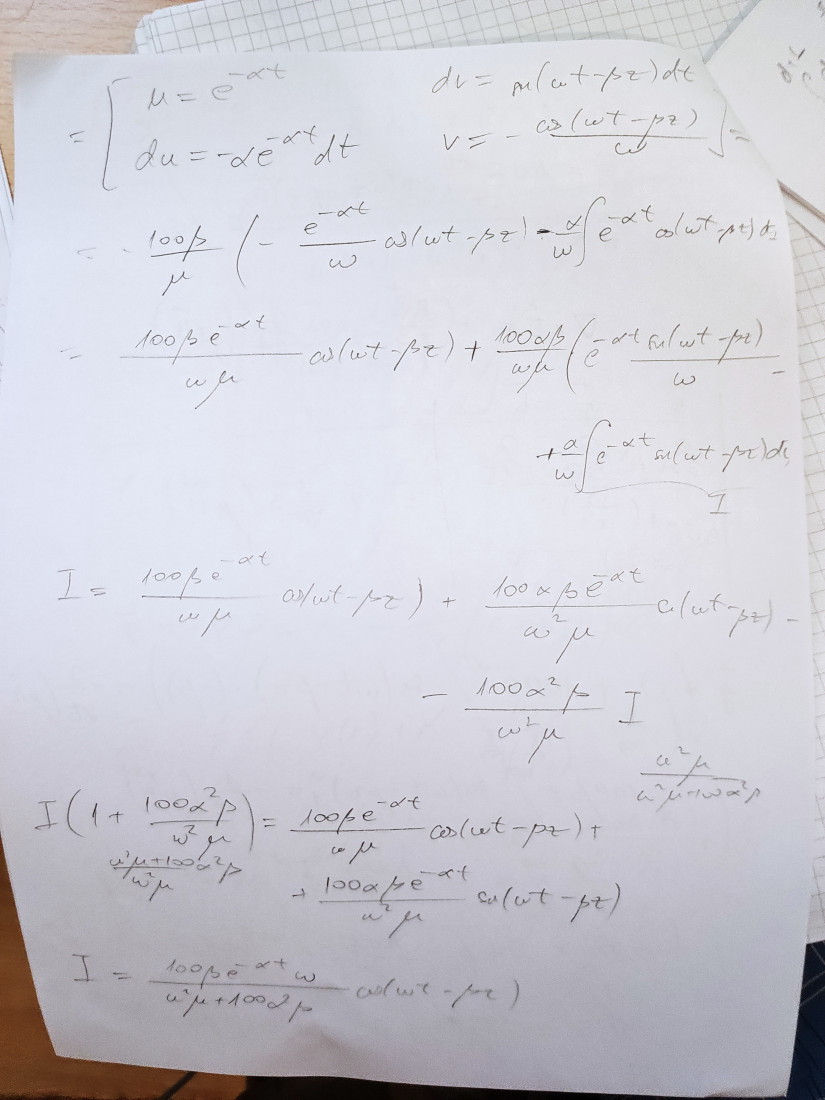 = [ u = e^{-αt} dv = sin(ωt-βz)dt
du = -αe^{-αt}dt v = - cos(ωt-βz)/ω ] =
= - 100β/μ ( - e^{-αt}/ω cos(ωt-βz) - α/ω ∫ e^{-αt} cos(ωt-βz)dt
= 100βe^{-αt}/ωμ cos(ωt-βz) + 100αβ/ωμ ( e^{-αt} sin(ωt-βz)/ω -
+ α/ω ∫ e^{-αt} sin(ωt-βz)dt
I
I = 100βe^{-αt}/ωμ cos(ωt-βz) + 100αβe^{-αt}/ω²μ sin(ωt-βz) -
- 100α²β/ω²μ I
ω²μ/ω²μ+100α²β
I(1 + 100α²β/ω²μ) = 100βe^{-αt}/ωμ cos(ωt-βz) +
ω²μ+100α²β/ω²μ
+ 100αβe^{-αt}/ω²μ sin(ωt-βz)
I = 100βe^{-αt}ω/ω²μ+100α²β cos(ωt-βz)